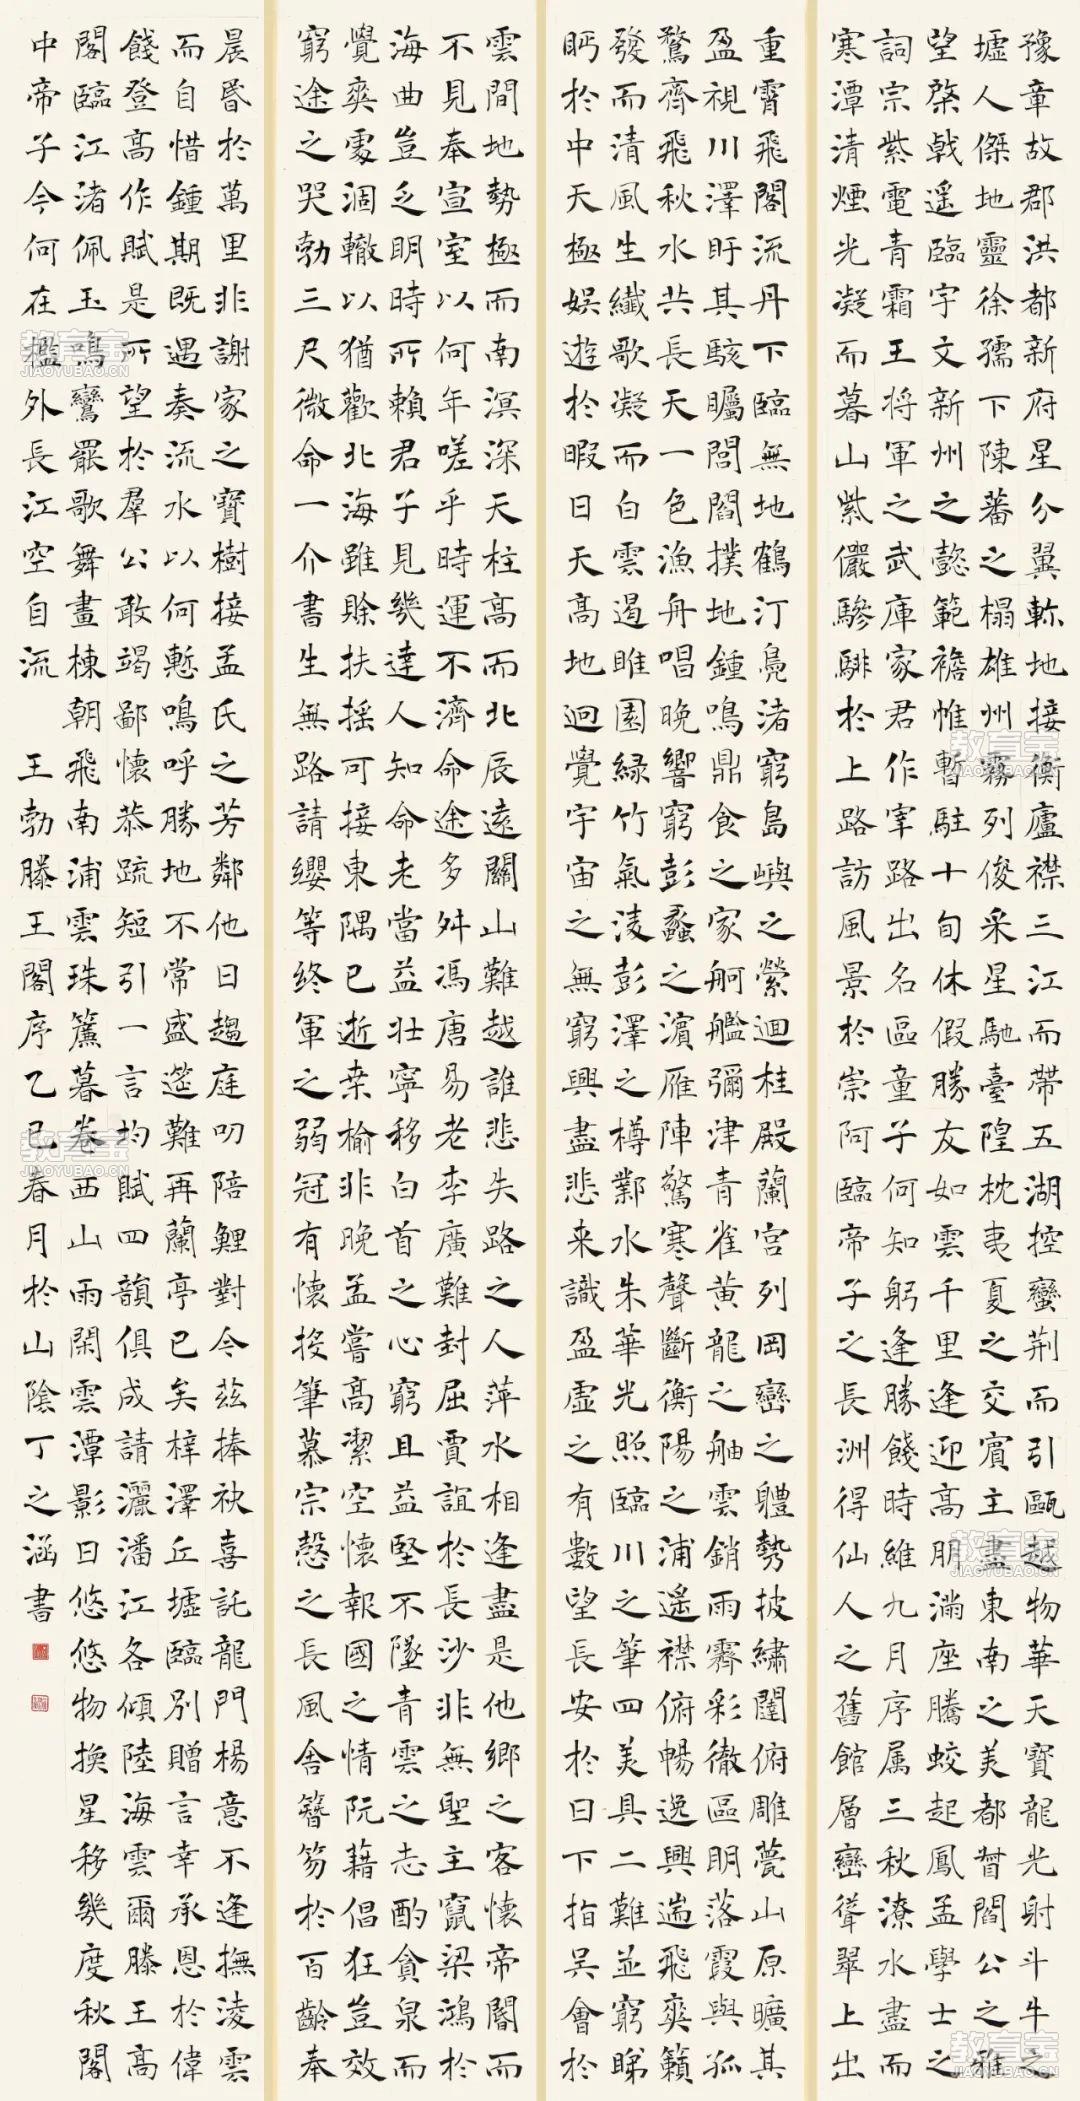 豫章故郡洪都新府星分翼軫地接衡廬襟三江而帶五湖控蠻荆而引甌越物華天寶龍光射斗牛之
墟人傑地靈徐孺下陳蕃之榻雄州霧列俊采星馳臺隍枕夷夏之交賓主盡東南之美都督閻公之雅
望棨戟遥臨宇文新州之懿範襜帷暫駐十旬休假勝友如雲千里逢迎高朋滿座騰蛟起鳳孟學士之
詞宗紫電青霜王將軍之武庫家君作宰路出名區童子何知躬逢勝餞時維九月序属三秋潦水盡而
寒潭清煙光凝而暮山紫儼驂騑於上路訪風景於崇阿臨帝子之長洲得仙人之舊館層巒聳翠上出
重霄飛閣流丹下臨無地鶴汀鳧渚窮島嶼之縈迴桂殿蘭宫列岡巒之體勢披繡闥俯雕甍山原曠其
盈視川澤盱其駭矚閭閻撲地鍾鳴鼎食之家舸艦彌津青雀黄龍之舳雲銷雨霽彩徹區明落霞與孤
鶩齊飛秋水共長天一色漁舟唱晚響窮彭蠡之濱雁陣驚寒聲斷衡陽之浦遥襟俯暢逸興遄飛爽籟
發而清風生纖歌凝而白雲遏睢園緑竹氣凌彭澤之樽鄴水朱華光照臨川之筆四美具二難並窮睇
眄於中天極娱遊於暇日天高地迥覺宇宙之無窮興盡悲来識盈虚之有數望長安於日下指吴會於
雲間地勢極而南溟深天柱高而北辰遠關山難越誰悲失路之人萍水相逢盡是他鄉之客懷帝閽而
不見奉宣室以何年嗟乎時運不濟命途多舛馮唐易老李廣難封屈賈誼於長沙非無聖主竄梁鴻於
海曲豈乏明時所賴君子見幾達人知命老當益壯寧移白首之心窮且益堅不墜青雲之志酌貪泉而
覺爽處涸轍以猶歡北海雖賒扶摇可接東隅已逝桑榆非晚孟嘗高潔空懷報國之情阮藉倡狂豈效
窮途之哭勃三尺微命一介書生無路請纓等終軍之弱冠有懷投筆慕宗慤之長風舍簪笏於百齡奉
晨昏於萬里非謝家之寶樹接孟氏之芳鄰他日趨庭叨陪鯉對今茲捧袂喜託龍門楊意不逢撫凌雲
而自惜鍾期既遇奏流水以何慙嗚呼勝地不常盛筵難再蘭亭已矣梓澤丘墟臨别贈言幸承恩於偉
餞登高作賦是所望於羣公敢竭鄙懷恭疏短引一言均賦四韻俱成請灑潘江各傾陸海雲爾滕王高
閣臨江渚佩玉鳴鸞罷歌舞畫棟朝飛南浦雲珠簾暮卷西山雨閑雲潭影日悠悠物換星移幾度秋閣
中帝子今何在檻外長江空自流 王勃滕王閣序乙巳春月於山陰丁之涵書
教育宝
JIAOYUBAO.CN
教育宝
JIAOYUBAO.CN
教育宝
JIAOYUBAO.CN
教育宝
JIAOYUBAO.CN
教育宝
JIAOYUBAO.CN